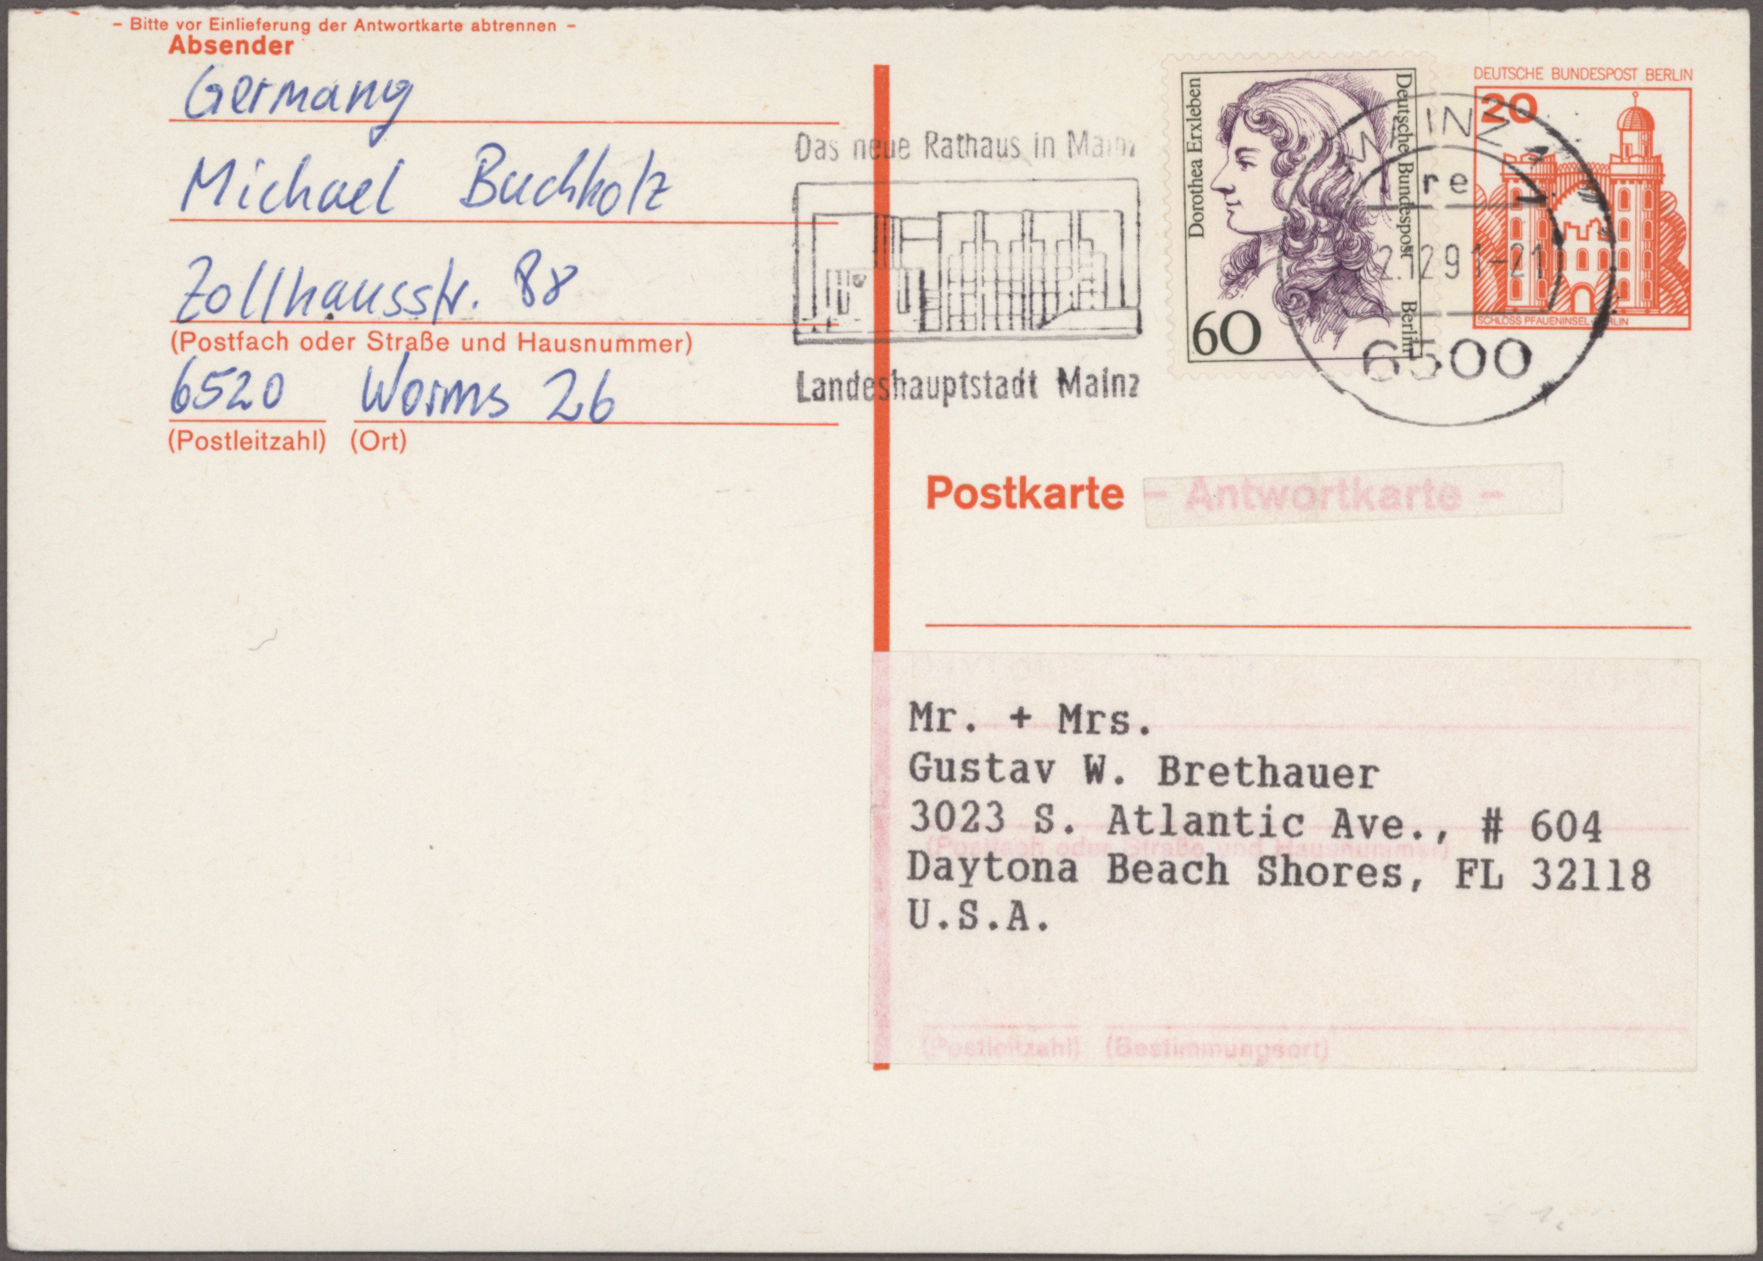 – Bitte vor Einlieferung der Antwortkarte abtrennen –
Absender
Germany
Michael Buchholz
Zollhausstr. 88
(Postfach oder Straße und Hausnummer)
6520 Worms 26
(Postleitzahl) (Ort)
Das neue Rathaus in Mainz
Landeshauptstadt Mainz
Dorothea Erxleben
Deutsche Bundespost Berlin
60
DEUTSCHE BUNDESPOST BERLIN
20
SCHLOSS PFAUENINSEL · BERLIN
MAINZ 1
re
2.12.91-21
6500
Postkarte – Antwortkarte –
Mr. + Mrs.
Gustav W. Brethauer
3023 S. Atlantic Ave., # 604
(Postfach oder Straße und Hausnummer)
Daytona Beach Shores, FL 32118
U.S.A.
(Postleitzahl) (Bestimmungsort)